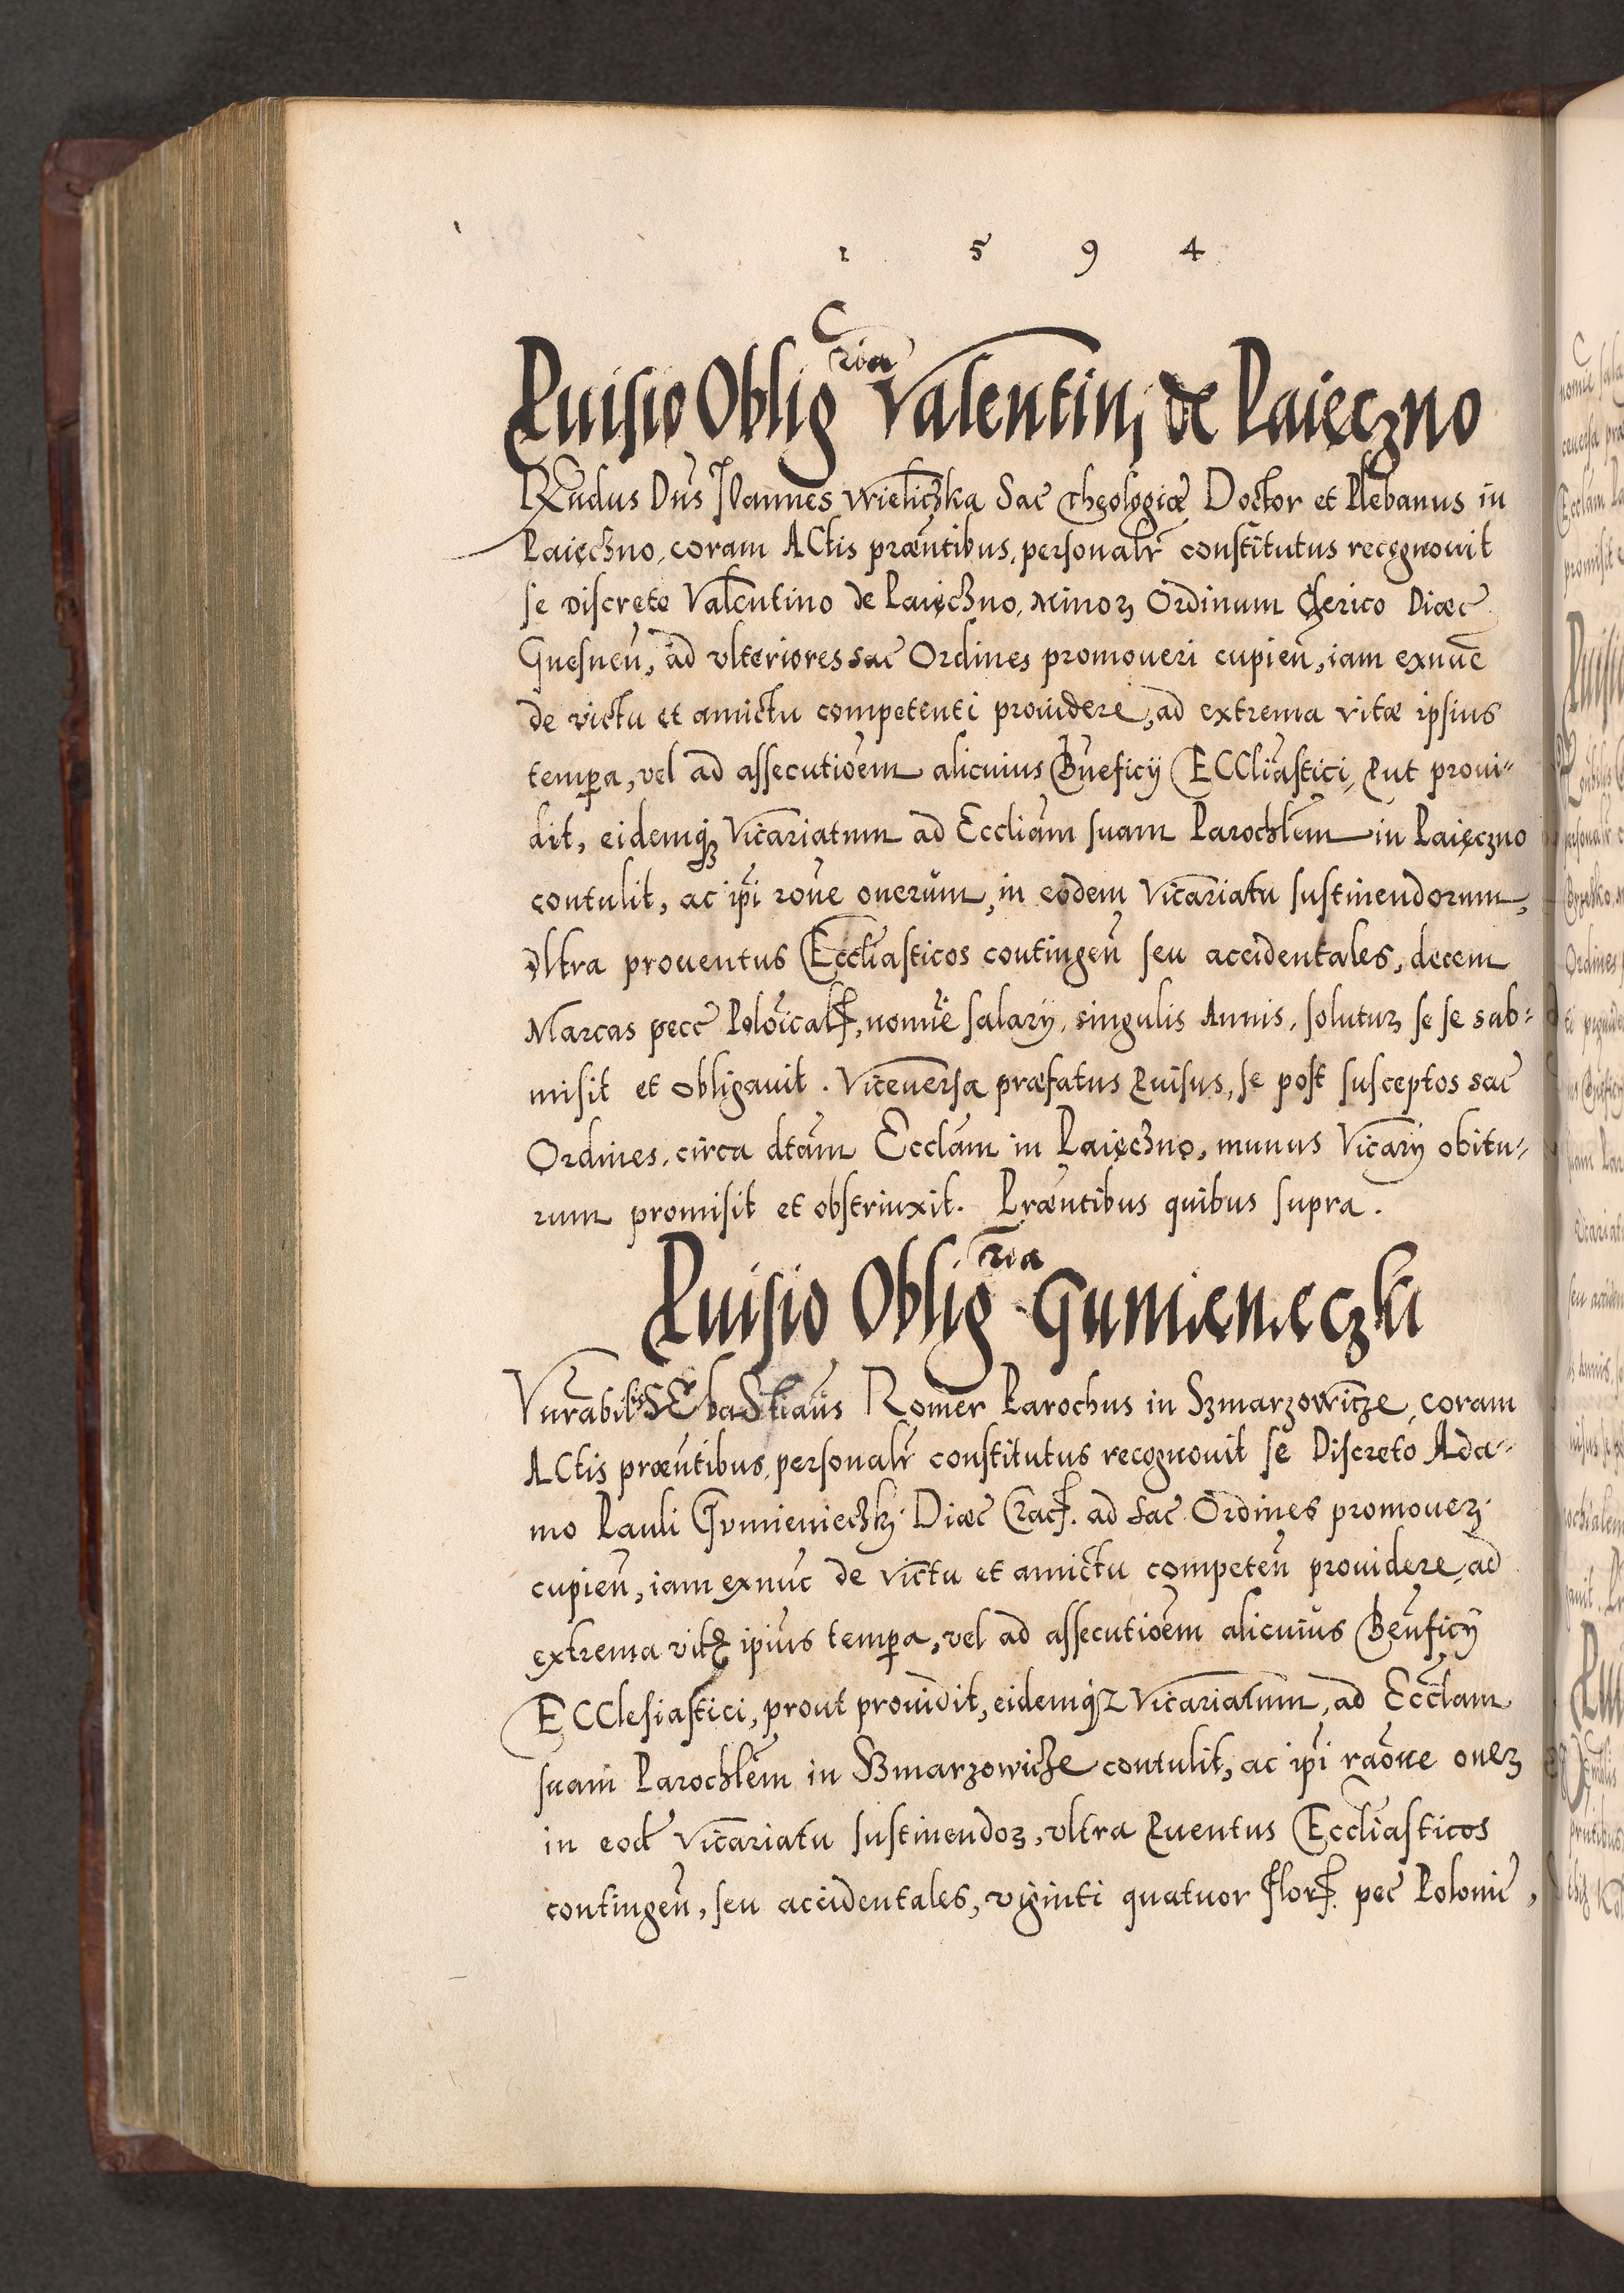 1 5 9 4
Ꝓuisio Oblig^ria Valentinj de Paięczno
Rͤndus Dn̄s Joannes Wieliczka Sac̄ Theologiæ Doctor et Plebanus in
Paięczno, coram Actis præn̄tibus, personalr̄ constitutus recognouit
se Discreto Valentino de Paięczno, Minorꝫ Ordinum Clerico Diœc̄
Gnesnen̄, ad vlteriores sac̄ Ordines promoueri cupien̄, iam exnuc̄
de victu et amictu competenti prouidere, ad extrema vitæ ipsius
temp̱a, vel ad assecutiōem alicuius Bn̄eficij ECCliāstici, Ꝓut proui〃
dit, eidemqꝫ Vicariatum ad Eccliām suam Parochlēm in Paięczno
contulit, ac ip̄i rōne onerum, in eodem Vicariatu sustinendorum,
Vltra prouentus Eccliāsticos contingen̄ seu accidentales, decem
Marcas pecc̄ Polōicalꝭ, nom̄ie salarij, singulis Annis, soluturꝫ se se sub〃
misit et obligauit. Viceuersa præfatus Ꝓuisus, se post susceptos sac̄
Ordines, circa dtām Ecclām in Paięczno, munus Vicarij obitu〃
rum promisit et obstrinxit. Præn̄tibus quibus supra.
Ꝓuisio Oblig^ria Gumienieczki
Vn̄rabil^is SEbaStian̄s Romer Parochus in Szmarzowicze, coram
ACtis præn̄tibus, personalr̄ constitutus recognouit se Discreto Ada〃
mo Pauli Gumienieczkj Diœc̄ Cracꝭ. ad Sac̄ Ordines promouerꝫ
cupien̄, iam exnuc̄ de victu et amictu competen̄ prouidere, ad
extrema vitę ip̄ius temp̱a, vel ad assecutiōem alicuius Ben̄ficij
ECClesiastici, prout prouidit, eidemqꝫ Vicariatum, ad Ecclām
suam Parochlēm in Szmarzowicze contulit, ac ip̄i raōne onerꝫ
in eod̄ Vicariatu sustinendorꝫ, vltra Ꝓuentus Eccliāsticos
contingen̄, seu accidentales, viginti quatuor florꝭ. pec̄ Poloni͞e,